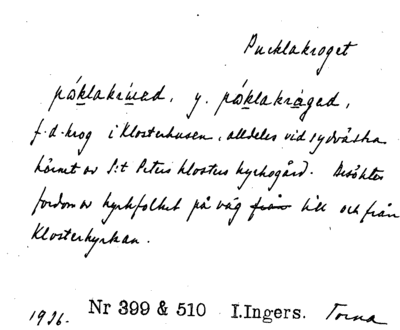 Pucklakroget
påklakrúed, y. påklakrågad,
f.d. krog i Klosterhusen, alldeles vid sydvästra
hörnet av S:t Peters klosters kyrkogård. Besöktes
fordom av kyrkfolket på väg från till och från
Klosterkyrkan.
1936. Nr 399 & 510 I.Ingers. Torna